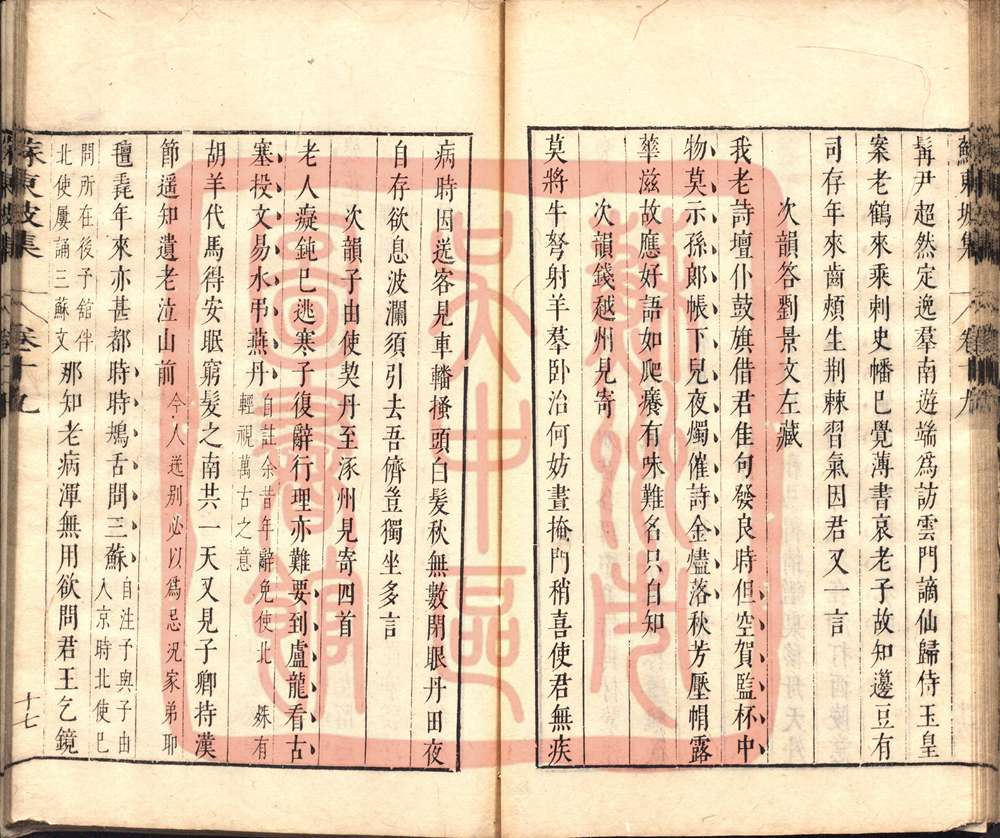 髯尹超然定逸羣南遊端爲訪雲門謫仙歸侍玉皇
案老鶴來乘刺史幡已覺薄書哀老子故知籩豆有
司存年來齒頰生荆棘習氣因君又一言
次韻答劉景文左藏
我老詩壇仆鼓旗借君佳句發良時但空賀監杯中
物莫示孫郎帳下兒夜燭催詩金燼落秋芳壓帽露
華滋故應好語如爬癢有味難名只自知
次韻錢越州見寄
莫將牛弩射羊羣卧治何妨晝掩門稍喜使君無疾
病時因送客見車轓搔頭白髪秋無數閉眼丹田夜
自存欲息波瀾須引去吾儕豈獨坐多言
次韻子由使契丹至涿州見寄四首
老人癡鈍已逃寒子復辭行理亦難要到盧龍看古
塞投文易水弔燕丹
自註余昔年辭免使北
輕視萬古之意
殊有
胡羊代馬得安眠窮髮之南共一天又見子卿持漢
節遥知遺老泣山前
今人送别必以爲忌況家弟耶
氊毳年來亦甚都時時鴂舌問三蘇
自注子與子由
入京時北使已
問所在後子舘伴
北使屢誦三蘇文
那知老病渾無用欲問君王乞鏡
蘇東坡集
卷十九
十七
蘇東坡集
卷十九
蘇州市
吴中區
圖書館